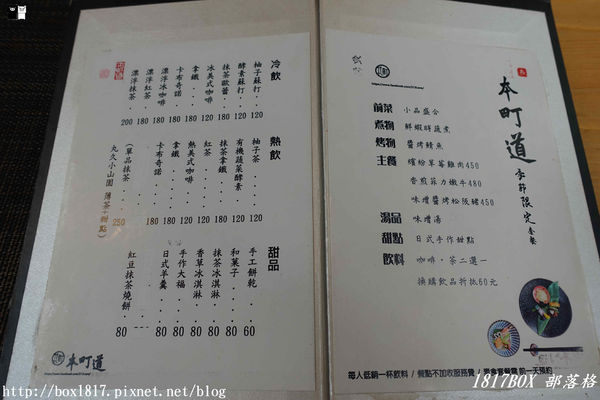 冷飲
柚子蘇打．．120
酵素蘇打．．120
抹茶歐蕾．．180
冰美式咖啡．120
拿鐵．．．．180
卡布奇諾．．180
漂浮冰咖啡．180
漂浮紅茶．．180
漂浮抹茶．．200
熱飲
柚子茶．．．120
有機蔬菜酵素120
抹茶拿鐵．．180
紅茶．．．．120
熱美式咖啡．120
拿鐵．．．．180
卡布奇諾．．180
(單品抹茶)
丸久小山園(薄茶+甜點)
250
甜品
手工餅乾．60
和菓子．．80
抹茶冰淇淋．80
香草冰淇淋．80
手作大福．．80
日式羊羹．．80
紅豆抹茶燒餅
80
本町道
本町道
季節限定套餐
前菜 小品盛合
煮物 鮮蝦時蔬煮
烤物 醬烤鯖魚
主餐 繽粉草莓雞肉450
香煎菲力嫩牛480
味增醬烤松阪豬450
湯品 味增湯
甜點 日式手作甜點
飲料 咖啡．茶二選一
換購飲品折抵60元
每人低銷一杯飲料 / 餐點不加收服務費 /
前一天預約
http://box1817.pixnet.net/blog
1817BOX 部落格